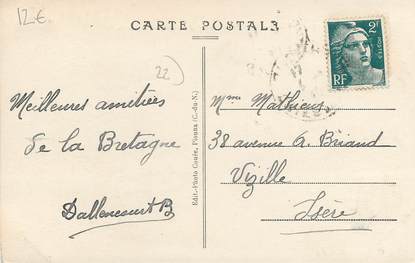 12€
CARTE POSTALE
22
Meilleures amitiés
de la Bretagne
Dallencourt B
Edit.-Photo Couée, Plouha (C.-du-N.)
2F
POSTES
RF
Mme Mathieux
38 avenue A. Briand
Vizille
Isère